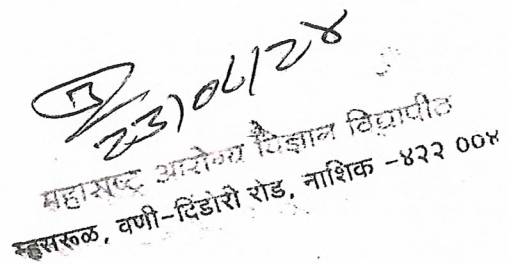 23/08/24
महाराष्ट्र आरोग्य विज्ञान विद्यापीठ
म्हसरूळ, वणी-दिंडोरी रोड, नाशिक -४२२ ००४